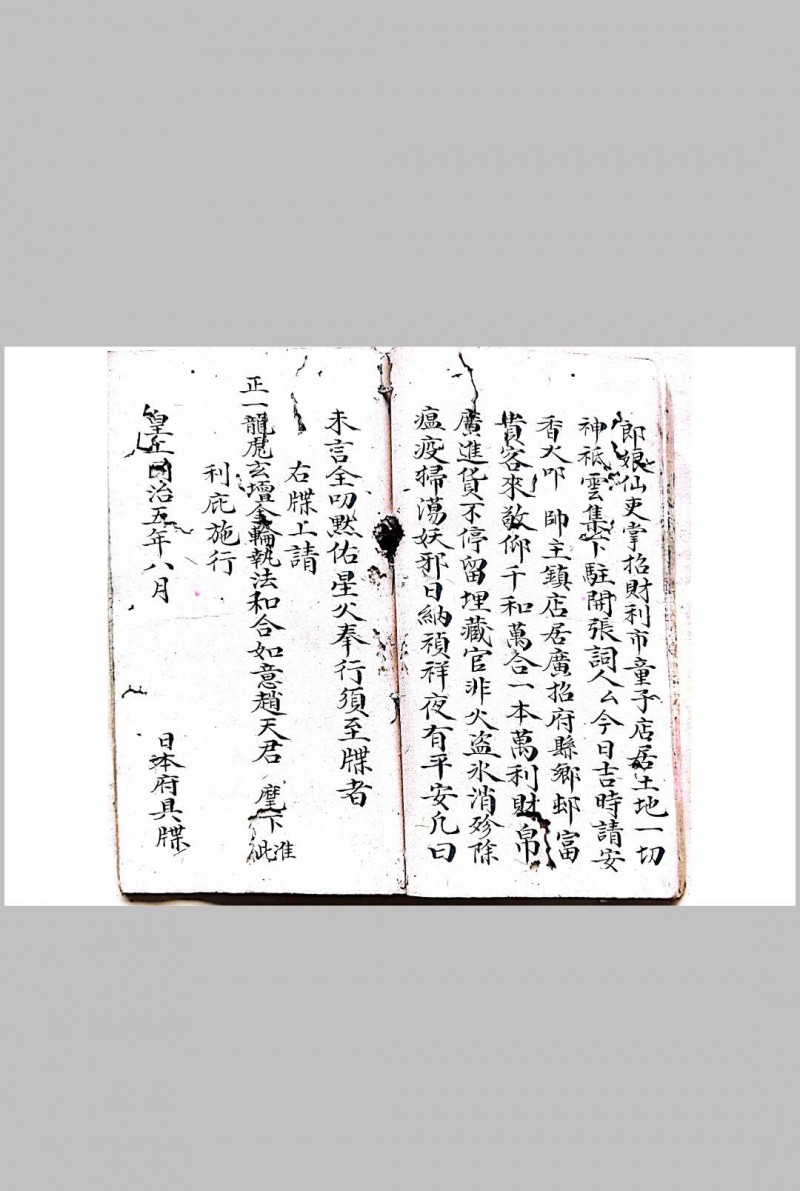 郎娘仙吏掌招財利市童子店居土地一切
神祗雲集下駐開張詞人厶今日吉時請安
香火叩 帥主鎮店居廣招府縣鄉邨富
貴客來敬仰千和萬合一本萬利財帛
廣進貨不停留埋藏官非火盜氷消殄除
瘟疫掃蕩妖邪日納禎祥夜有平安凡曰
未言全叨黙佑星火奉行須至牒者
右牒上請
正一龍虎玄壇金輪執法和合如意趙天君 麾下准此
利庇施行
皇上同治五年八月 日本府具牒